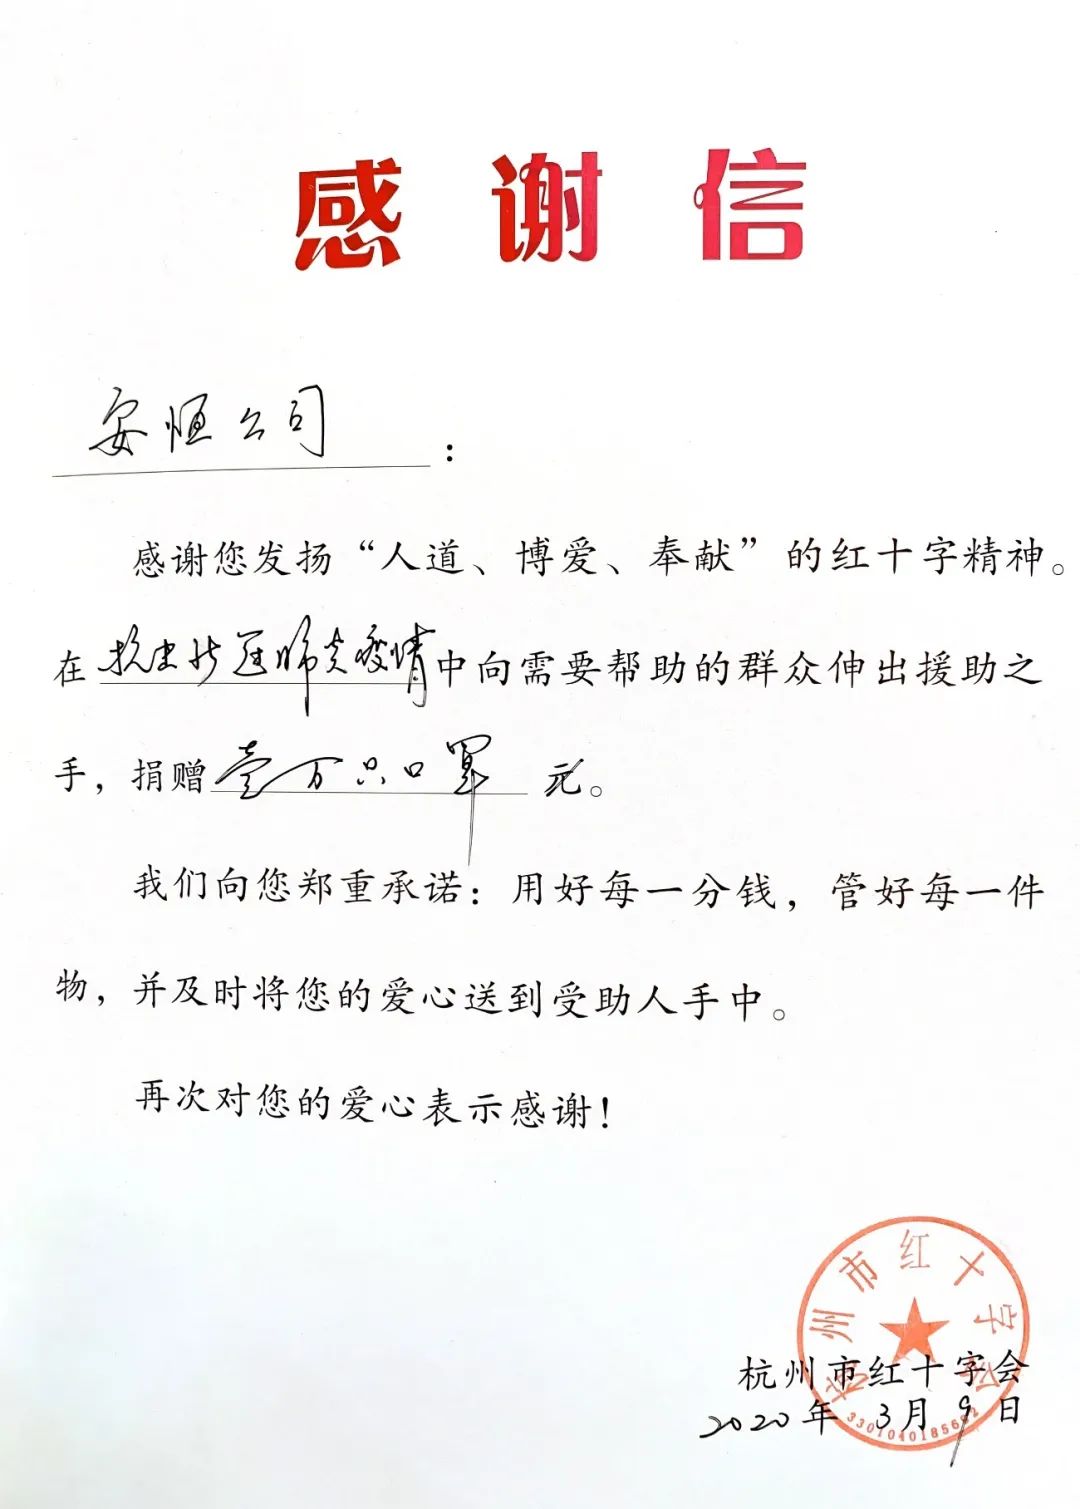 感谢信
安恒公司：
感谢您发扬“人道、博爱、奉献”的红十字精神。
在抗击新冠肺炎疫情中向需要帮助的群众伸出援助之
手，捐赠壹万只口罩元。
我们向您郑重承诺：用好每一分钱，管好每一件
物，并及时将您的爱心送到受助人手中。
再次对您的爱心表示感谢！
杭州市红十字会
杭州市红十字会
2020年3月9日